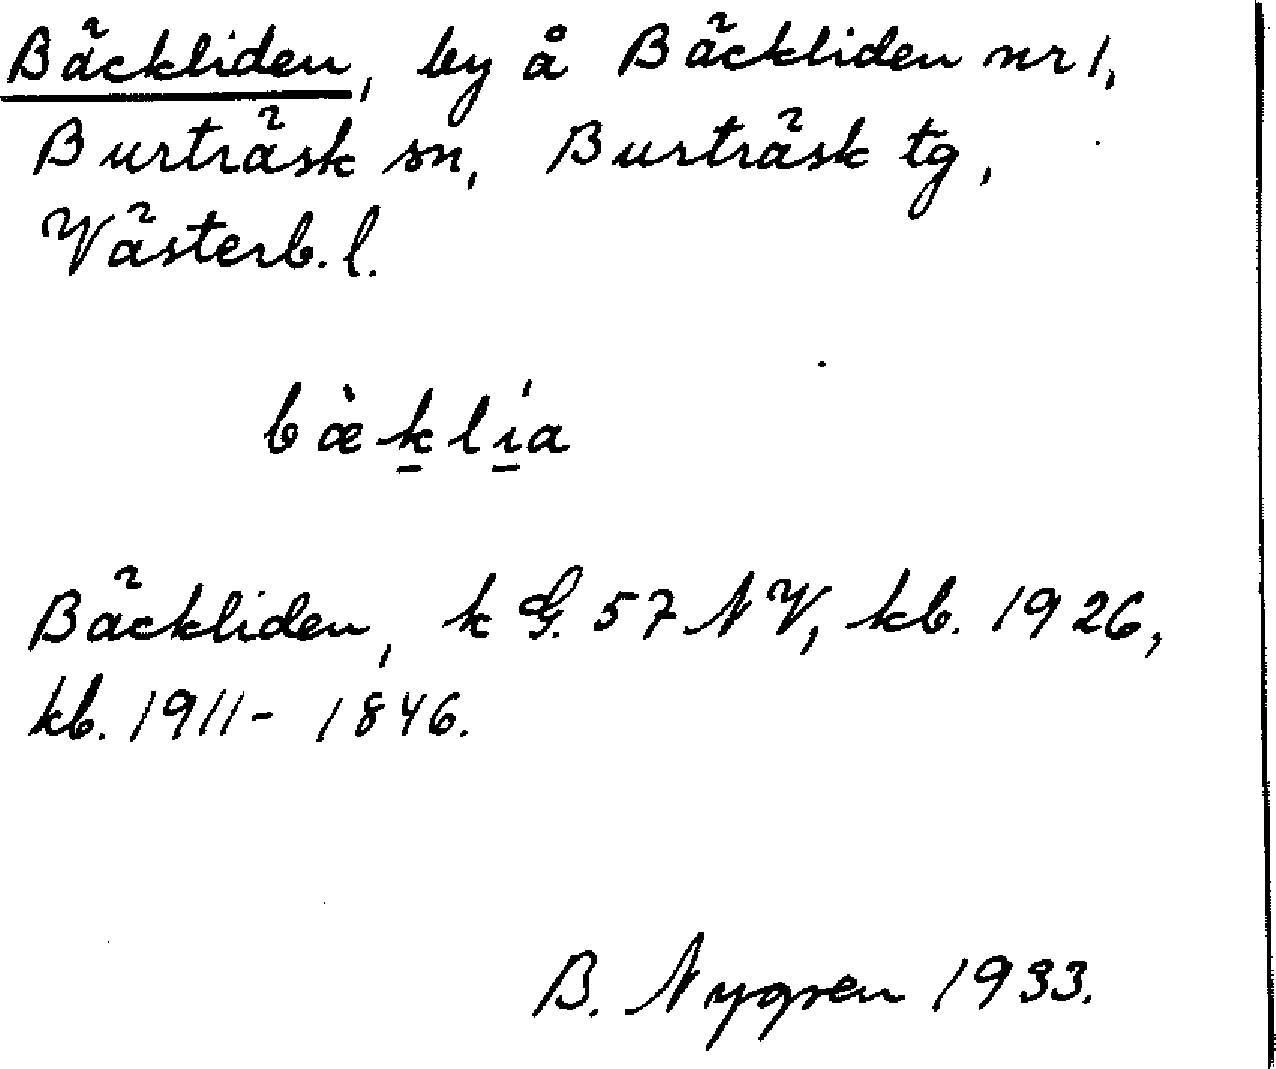 Bäckliden, by å Bäckliden nr 1,
Burträsk sn, Burträsk tg,
Västerb. l.
bæ̀k̲lí̲a
Bäckliden, k G. 57 NV, kb. 1926,
kb. 1911- 1846.
B. Nygren 1933.